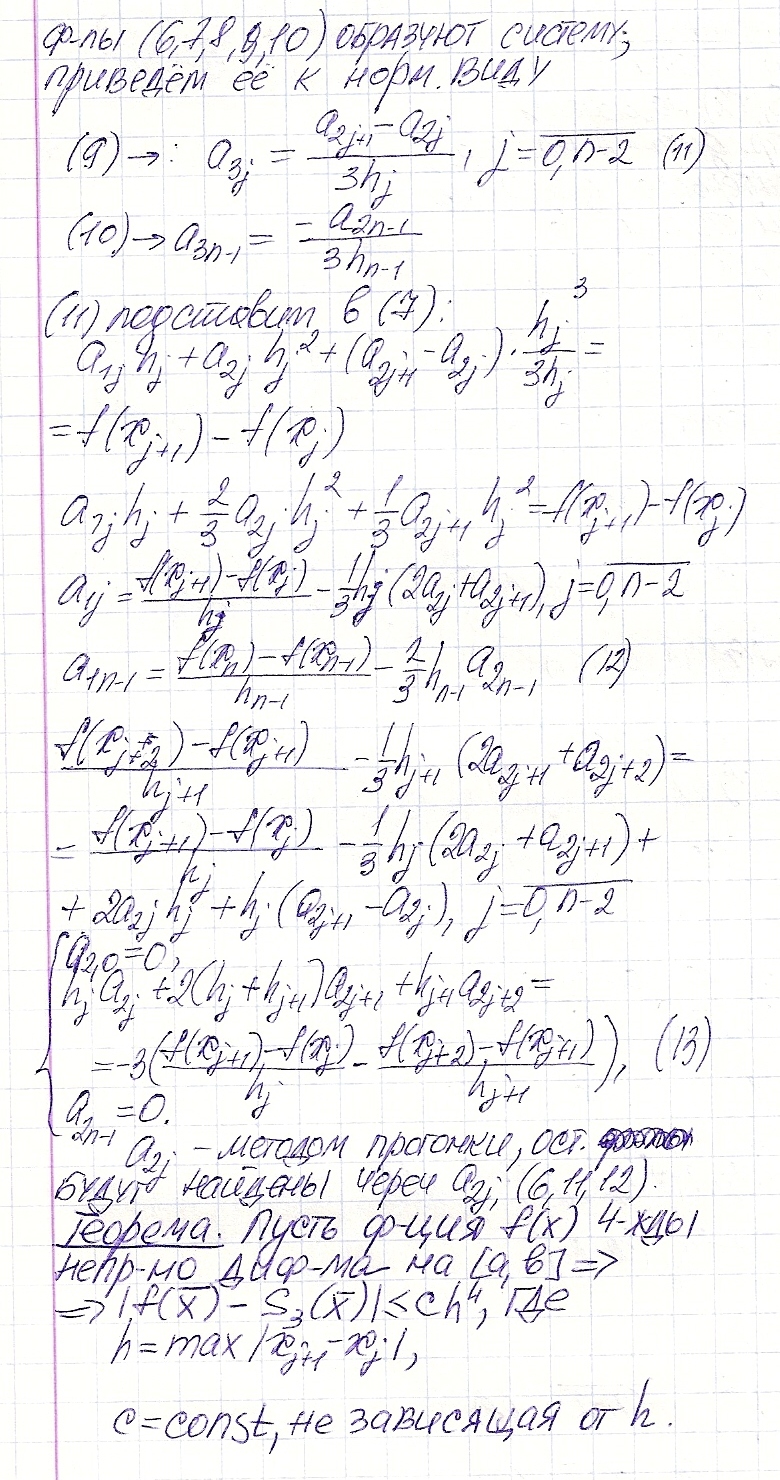 ф-лы (6,7,8,9,10) образуют систему;
приведём её к норм. виду
(9) →: a_{3j} = \frac{a_{2j+1} - a_{2j}}{3h_j}, j = \overline{0, n-2} (11)
(10) → a_{3n-1} = \frac{-a_{2n-1}}{3h_{n-1}}
(11) подставим в (7):
a_{1j} h_j + a_{2j} h_j^2 + (a_{2j+1} - a_{2j}) · \frac{h_j^3}{3h_j} =
= f(x_{j+1}) - f(x_j)
a_{1j} h_j + \frac{2}{3} a_{2j} h_j^2 + \frac{1}{3} a_{2j+1} h_j^2 = f(x_{j+1}) - f(x_j)
a_{1j} = \frac{f(x_{j+1}) - f(x_j)}{h_j} - \frac{1}{3} h_j (2a_{2j} + a_{2j+1}), j = \overline{0, n-2}
a_{1n-1} = \frac{f(x_n) - f(x_{n-1})}{h_{n-1}} - \frac{2}{3} h_{n-1} a_{2n-1} (12)
\frac{f(x_{j+2}) - f(x_{j+1})}{h_{j+1}} - \frac{1}{3} h_{j+1} (2a_{2j+1} + a_{2j+2}) =
= \frac{f(x_{j+1}) - f(x_j)}{h_j} - \frac{1}{3} h_j (2a_{2j} + a_{2j+1}) +
+ 2a_{2j} h_j + h_j (a_{2j+1} - a_{2j}), j = \overline{0, n-2}
{ a_{2,0} = 0,
h_j a_{2j} + 2(h_j + h_{j+1}) a_{2j+1} + h_{j+1} a_{2j+2} =
= -3(\frac{f(x_{j+1}) - f(x_j)}{h_j} - \frac{f(x_{j+2}) - f(x_{j+1})}{h_{j+1}}), (13)
a_{2n-1} = 0.
a_{2j} - методом прогонки, ост.
будут найдены через a_{2j}, (6,11,12).
Теорема. Пусть ф-ция f(x) 4-жды
непр-но диф-ма на [a,b] ⇒
⇒ |f(\overline{x}) - S_3(\overline{x})| ≤ ch^4, где
h = max |x_{j+1} - x_j|,
c = const, не зависящая от h.